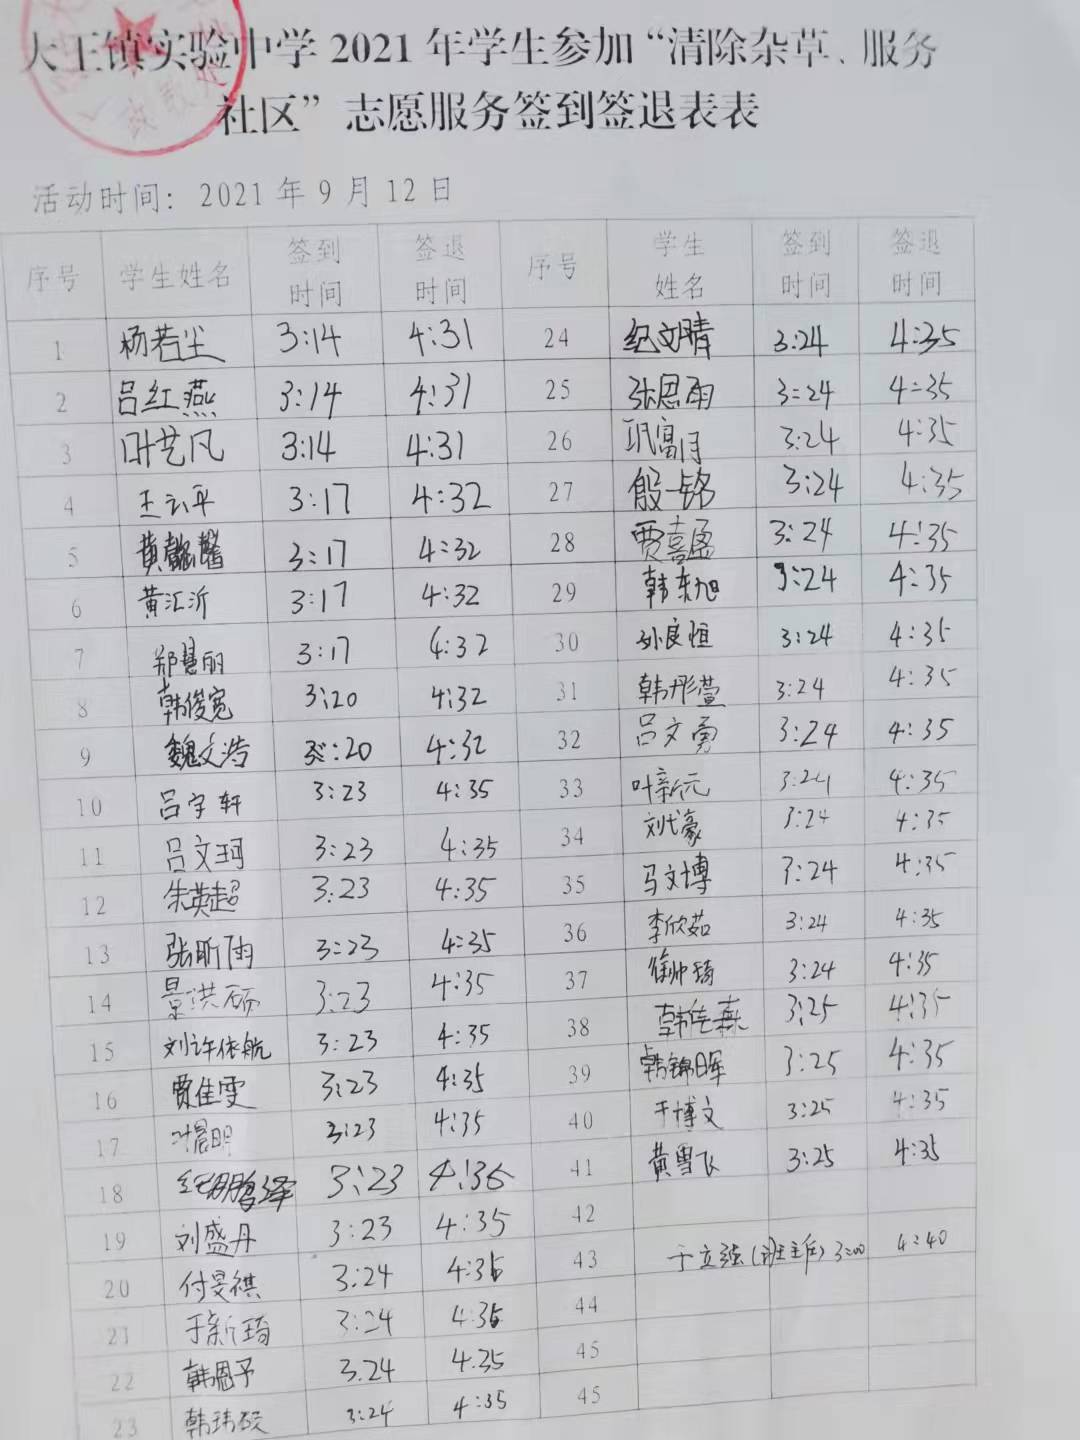 大王镇实验中学 2021 年学生参加“清除杂草、服务
社区”志愿服务签到签退表表
活动时间：2021 年 9 月 12 日
序号 学生姓名 签到时间 签退时间 序号 学生姓名 签到时间 签退时间
1 杨若尘 3:14 4:31 24 纪文晴 3:24 4:35
2 吕红燕 3:14 4:31 25 张恩雨 3:24 4:35
3 叶艺凡 3:14 4:31 26 3:24 4:35
4 王云平 3:17 4:32 27 殷一铭 3:24 4:35
5 黄馨 3:17 4:32 28 贾喜盈 3:24 4:35
6 黄汇沂 3:17 4:32 29 韩东旭 3:24 4:35
7 郑慧丽 3:17 4:32 30 孙良恒 3:24 4:35
8 韩俊宽 3:20 4:32 31 韩彤萱 3:24 4:35
9 魏文浩 3:20 4:32 32 吕文勇 3:24 4:35
10 吕宇轩 3:23 4:35 33 叶新元 3:24 4:35
11 吕文珂 3:23 4:35 34 刘代豪 3:24 4:35
12 朱英超 3:23 4:35 35 马文博 3:24 4:35
13 张昕雨 3:23 4:35 36 李欣茹 3:24 4:35
14 景洪硕 3:23 4:35 37 徐帅琦 3:24 4:35
15 刘许依航 3:23 4:35 38 韩佳燕 3:25 4:35
16 贾佳雯 3:23 4:35 39 韩锦晖 3:25 4:35
17 叶晨明 3:23 4:35 40 于博文 3:25 4:35
18 鹏泽 3:23 4:36 41 黄雪飞 3:25 4:35
19 刘盛丹 3:23 4:35 42
20 付旻祺 3:24 4:35 43 于立强（班主任）3:00 4:40
21 于新琦 3:24 4:35 44
22 韩恩予 3:24 4:35 45
23 韩玮硕 3:24 4:35 45